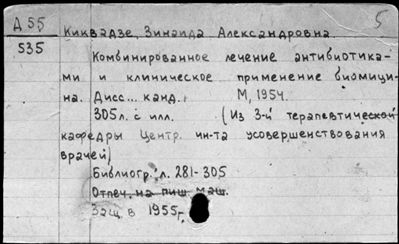 Д 55 5
Киквадзе, Зинаида Александровна
535
Комбинированное лечение антибиотика-
ми и клиническое применение биомици-
на. Дисс... канд. М, 1954.
305 л. с илл. (Из 3-й терапевтической
кафедры Центр. ин-та усовершенствования
врачей)
Библиогр. л. 281-305
Отпеч. на пиш. маш.
Защ. в 1955г.